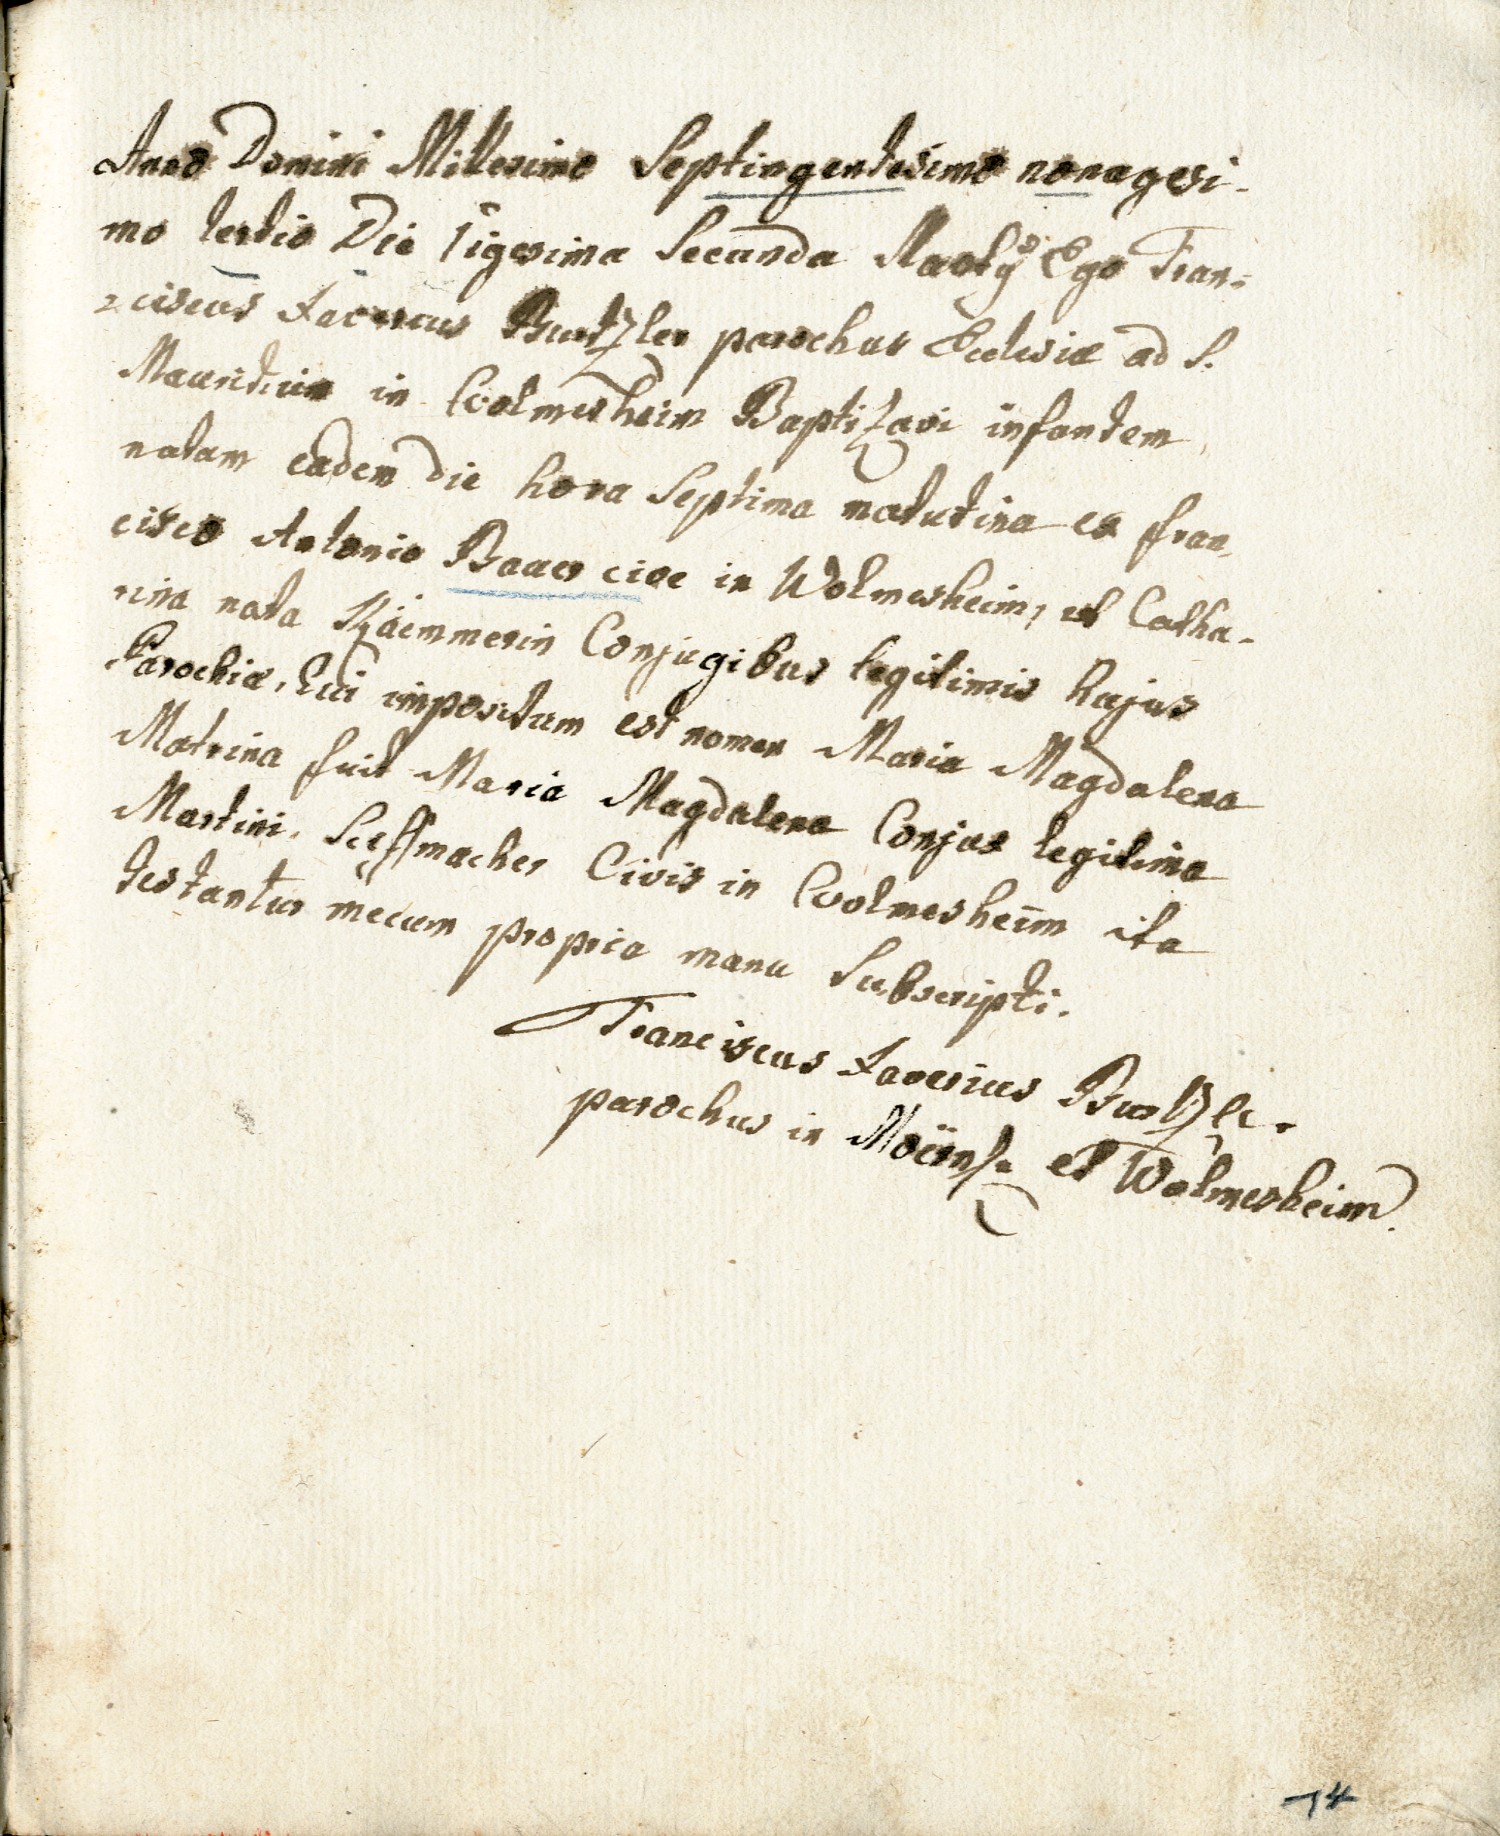 Anno Domini Millesimo Septingentesimo nonagesi-
mo tertio Die Vigesima Secunda Martÿ Ego Fran-
ciscus Xaverius Burtzler parochus Ecclesiæ ad S.
Mauritium in Wolmesheim Baptizavi infantem
natam eadem die hora Septima matutina ex fran
cisco Antonio Baaer cive in Wolmesheim, et Catha-
rina nata Käemmerin Conjugibus legitimis hujus
Parochiæ, Cui impositum est nomen Maria Magdalena
Matrina fuit Maria Magdalena Conjux legitima
Martini Civis in Wolmesheim ita
testantur mecum propria manu Subscripti.
Franciscus Xaverius Burtzler
parochus in et Wolmesheim
14